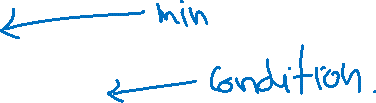 min
Condition.